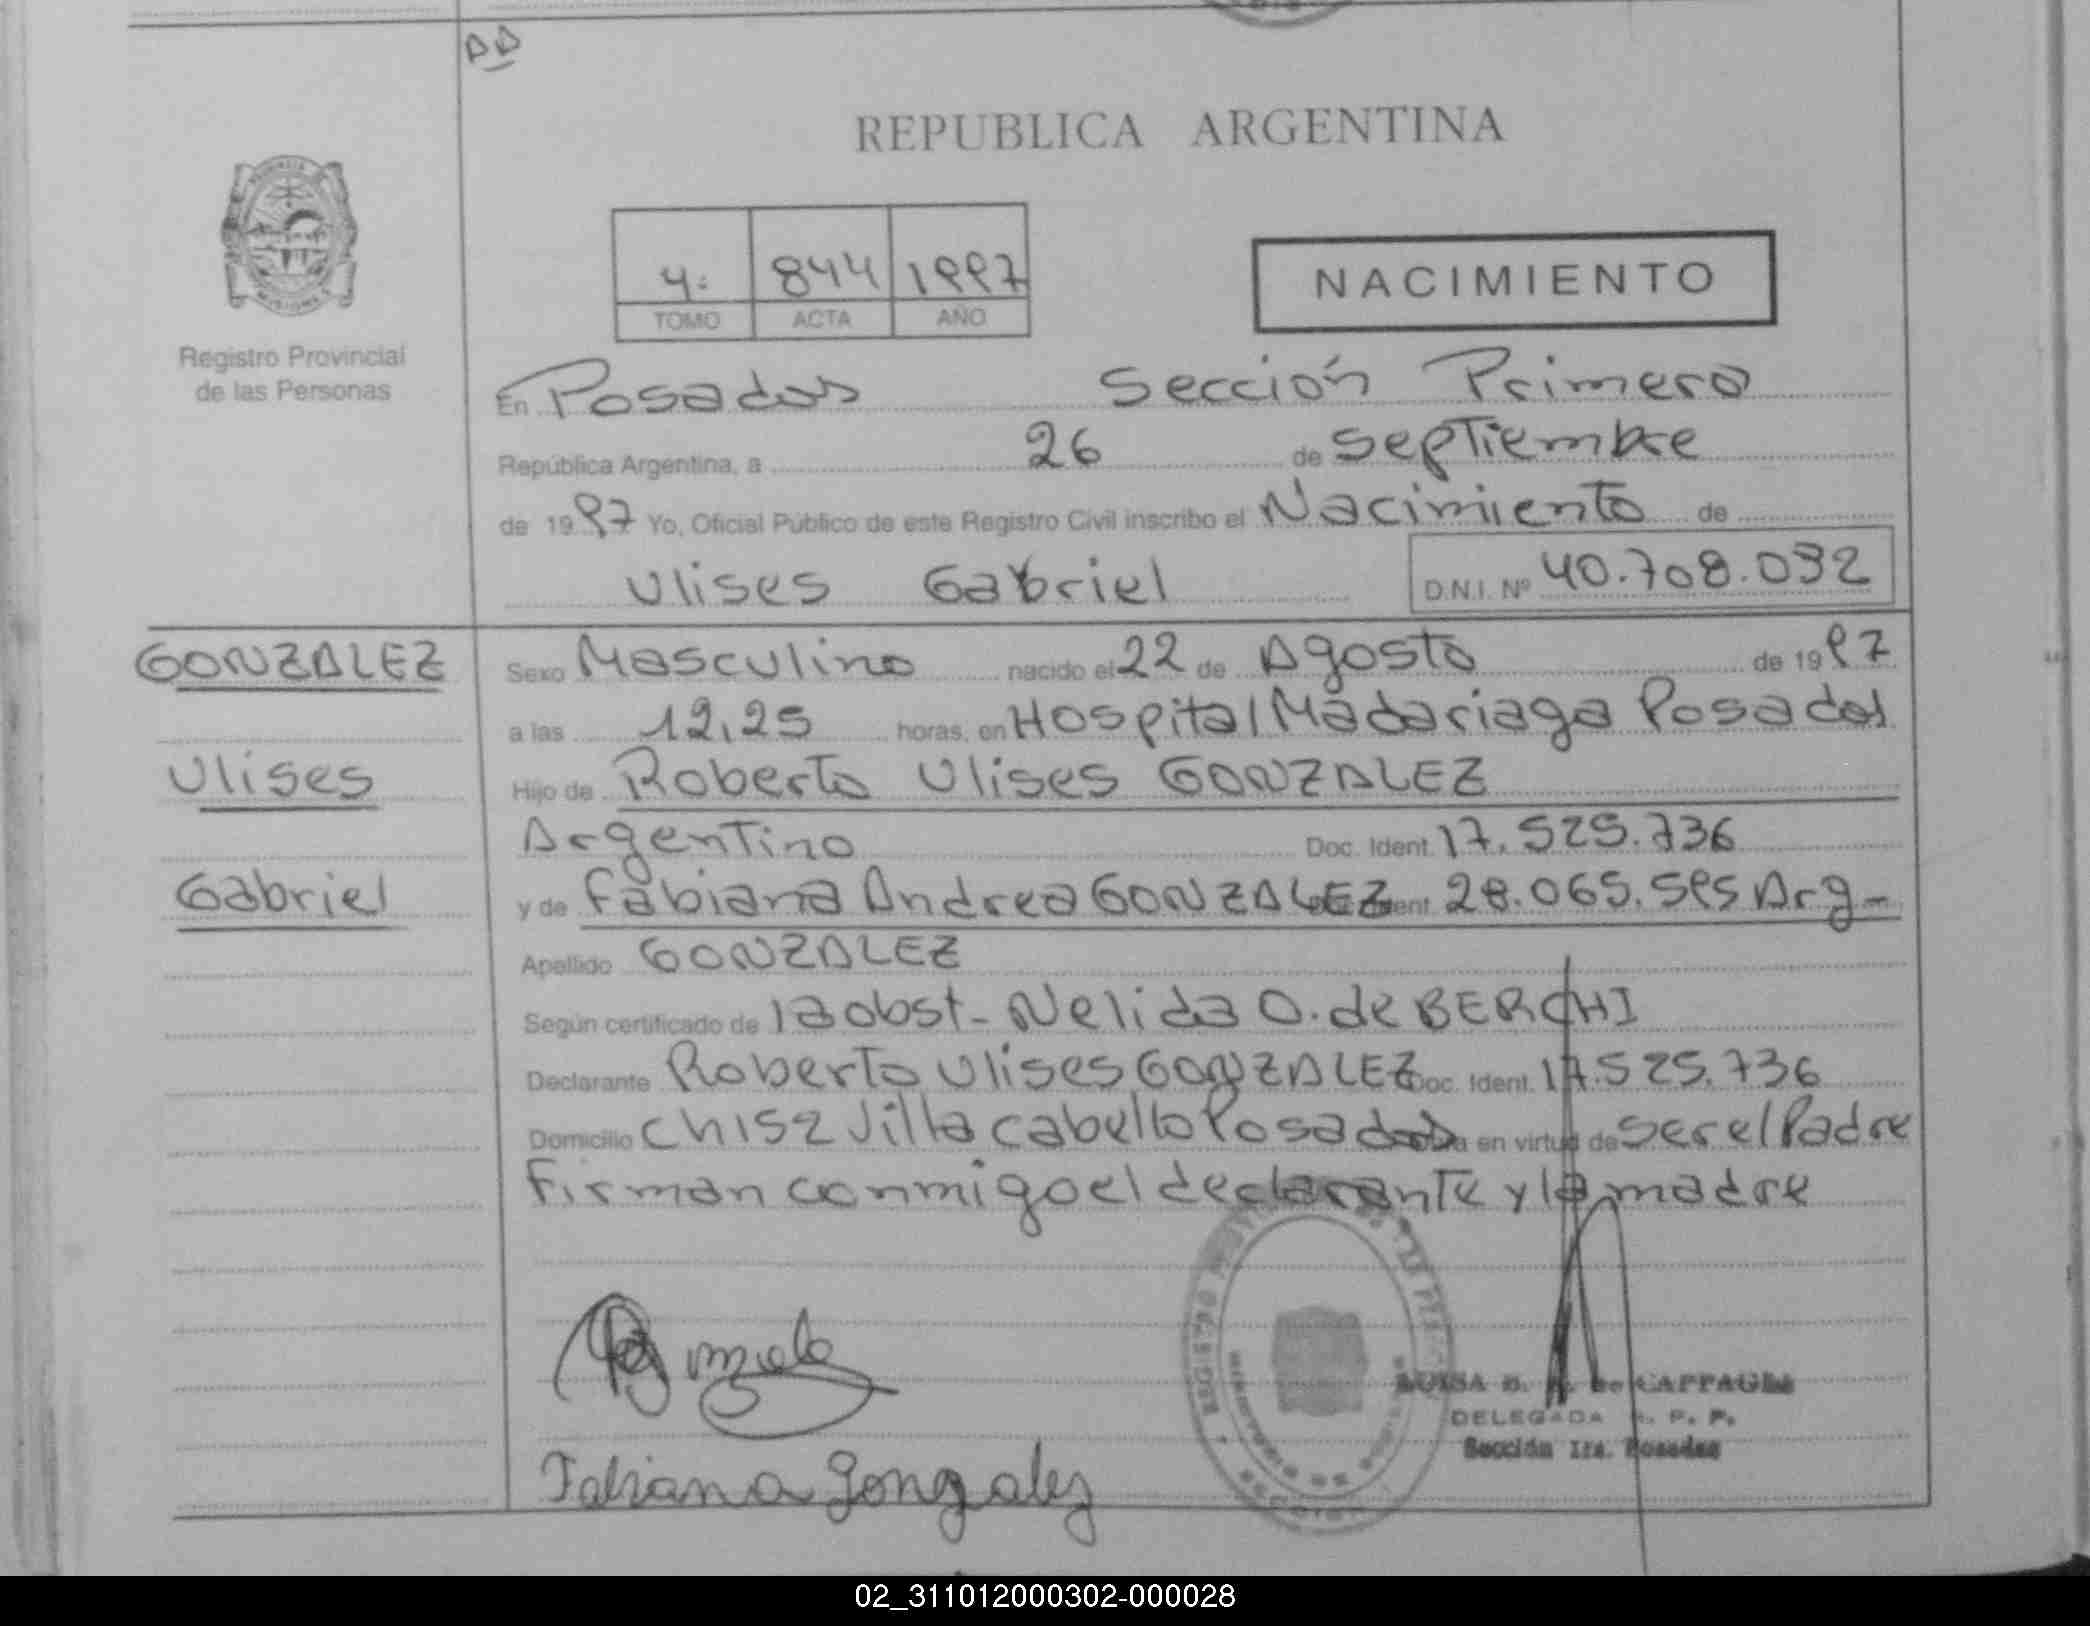 REPUBLICA ARGENTINA
4: 844 1997
TOMO ACTA AÑO
NACIMIENTO
Registro Provincial
de las Personas
En Posadas Sección Primera
República Argentina, a 26 de septiembre
de 1997 Yo, Oficial Público de este Registro Civil inscribo el Nacimiento de
Ulises Gabriel D.N.I. Nº 40.708.092
GONZALEZ
Ulises
Gabriel
Sexo Masculino nacido el 22 de Agosto de 1997
a las 12,25 horas, en Hospital Madariaga Posadas
Hijo de Roberto Ulises GONZALEZ
Argentino Doc. Ident. 17.525.736
y de Fabiana Andrea GONZALEZ Ident. 28.065.595 Arg-
Apellido GONZALEZ
Según certificado de la obst- Nelida O. de BERCHI
Declarante Roberto Ulises GONZALEZ Doc. Ident. 17.525.736
Domicilio Ch152 Villa Cabello Posadas en virtud de ser el Padre
Firman conmigo el declarante y la madre
Fabiana Gonzalez
LUISA
DELEGADA R. P. P.
Sección 1ra. Posadas
02_311012000302-000028